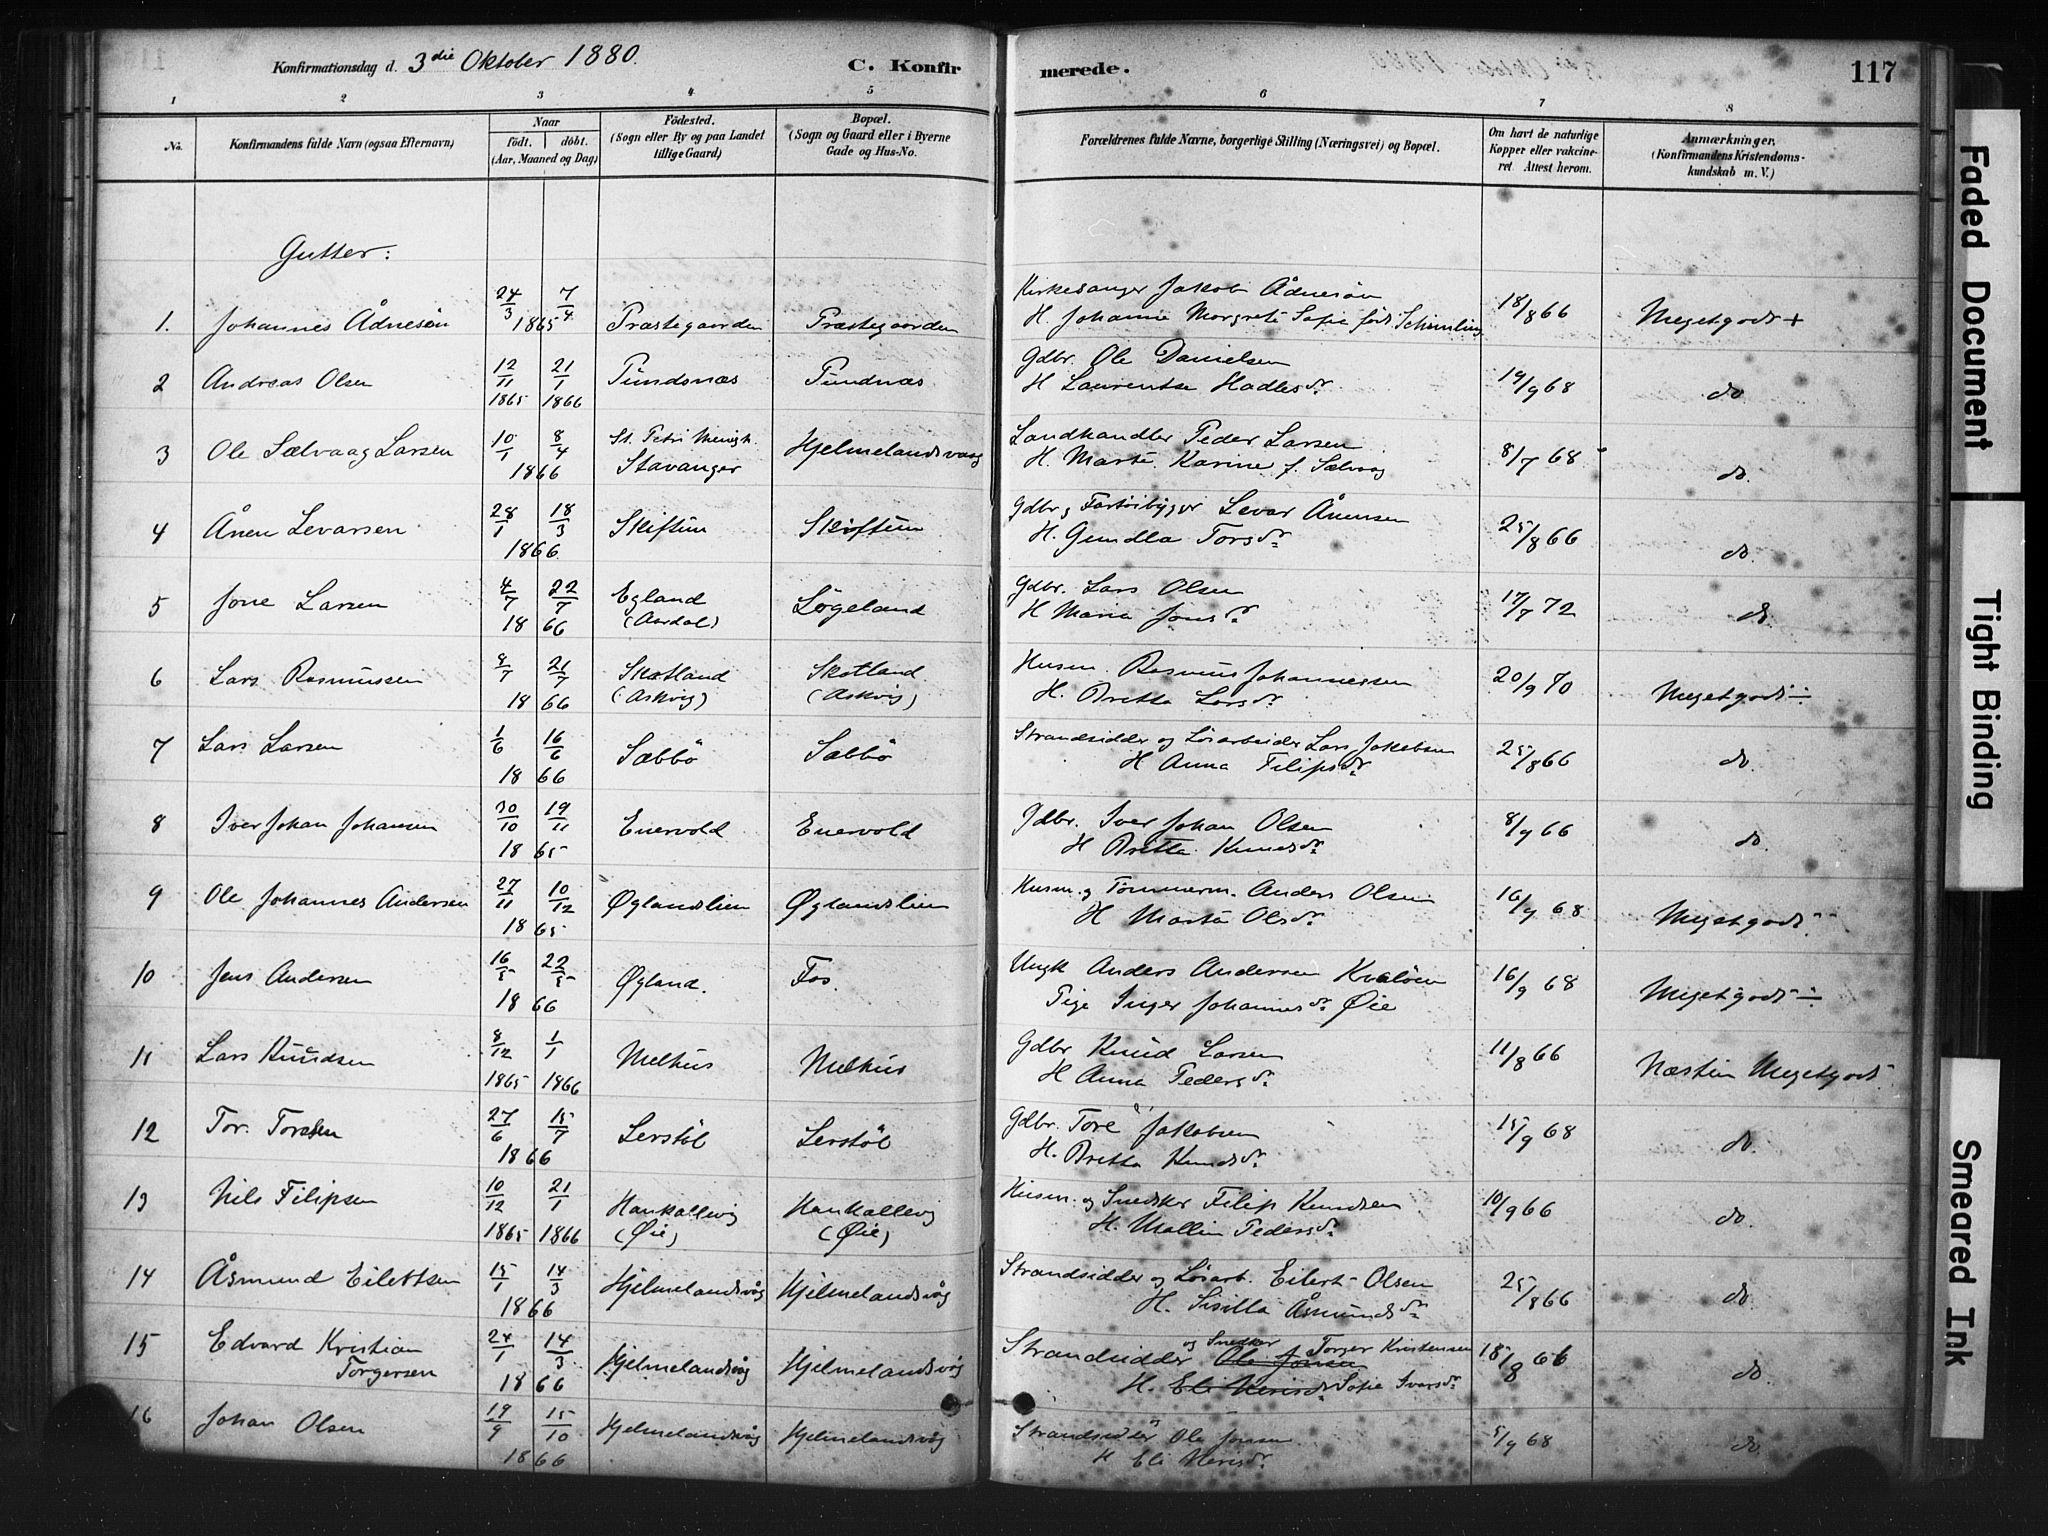 Konfirmationsdag d. 3die Oktober 1880. C. Konfirmerede. 117
1 2 3 4 5 6 7 8
No. Konfirmandens fulde Navn (ogsaa Efternavn) Naar födt. döbt. (Aar, Maaned og Dag) Födested. (Sogn eller By og paa Landet tillige Gaard) Bopæl. (Sogn og Gaard eller i Byerne Gade og Hus-No. Forældrenes fulde Navne, borgerlige Stilling (Næringsvei) og Bopæl. Om havt de naturlige Kopper eller vakcineret. Attest herom. Anmærkninger. (Konfirmandens Kristendomskundskab m. V.)
Gutter:
1. Johannes Ådnesön 24/3 7/4 1865 Præstegaarden Præstegaarden Kirkesanger Jakob Ådnesön H. Johanne Margrete Sofie född Schimling 18/8 66 Megetgodt +
2 Andreas Olsen 12/11 1865 21/1 1866 Pundsnæs Pundnæs Gdbr. Ole Danielsen H Laurentse Hadlesdr. 19/9 68 do
3 Ole Sælvaag Larsen 10/1 8/4 1866 St. Petri Menigh. Stavanger Hjelmelandsvaag Landhandler Peder Larsen H. Marte Karine f. Sælvaag 8/7 68 do.
4 Ånen Levarsen 28/1 18/3 1866 Skiftun Skiftun Gdbr og Fartöibygger Levar Ånensen H. Gundla Torsdr. 25/8 66 do
5 Jone Larsen 4/7 22/7 1866 Egland (Aardal) Lögeland Gdbr. Lars Olsen H Maria Jonsdr. 17/7 72 do
6 Lars Rasmussen 8/7 21/7 1866 Skotland (Askvig) Skotland (Askvig) Husm. Rasmus Johannessen H. Britta Larsdr. 20/9 70 Megetgodt ÷
7 Lars Larsen 1/6 16/6 1866 Sæbbö Sæbbö Strandsidder og Lösarbeider Lars Jakobsen H Anna Filipsdr. 25/8 66 do.
8 Iver Johan Johansen 30/10 19/11 1865 Enervold Enervold Gdbr. Iver Johan Olsen H Britta Knudsdr. 8/9 66 do.
9 Ole Johannes Andersen 27/11 10/12 1865 Øglandslien Øglandslien Husm. og Tömmerm. Anders Olsen H Marta Olsdr. 16/9 68 Megetgodt
10 Jens Andersen 16/5 22/5 1866 Øgland. Fos. Ungk Anders Andersen Kvalöen Pige Inger Johannesdr. Øie 16/9 68 Megetgodt ÷
11 Lars Knudsen 8/12 1865 1/1 1866 Melhus Melhus Gdbr Knud Larsen H Anna Pedersdr. 11/8 66 Næsten Megetgodt
12 Tor. Torsen 27/6 15/7 1866 Lerstöl Lerstöl Gdbr. Tore Jakobsen H. Britta Knudsdr. 15/9 68 do.
13 Nils Filipsen 10/12 1865 21/1 1866 Hankallevig (Øie) Hankallevig (Øie) Husm. og Snedker Filip Knudsen H. Mallin Pedersdr. 10/9 66 do.
14 Åsmund Eilettsen 15/1 14/3 1866 Hjelmelandsvåg Hjelmelandsvåg Strandsidder og Lösarb. Eilert Olsen H. Sisilla Åsmundsdr. 25/8 66 do.
15 Edvard Kristian Torgersen 24/1 14/3 1866 Hjelmelandsvåg Hjelmelandsvåg Strandsidder og Snedker Ole Jonsen Torger Kristensen H. Eli Sofie Ivarsdr. 18/8 66 do.
16 Johan Olsen 19/9 15/10 1866 Hjelmelandsvåg Hjelmelandsvåg Strandsidder Ole Jonsen H Eli 5/9 68 do.
Faded Document
Tight Binding
Smeared Ink